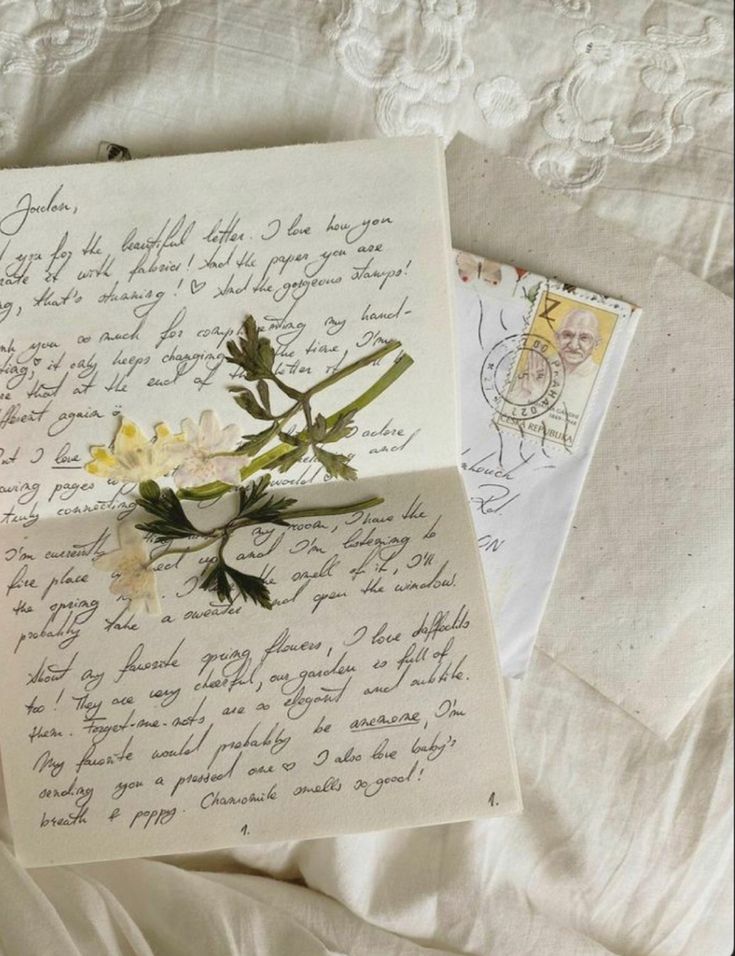 Jordan,
you for the beautiful letter. I love how you
rate it with fabrics! And the paper you are
ng, that's stunning! ♡ And the gorgeous stamps!
nk you so much for complimenting my hand-
ting, it only keeps changing the time, I'm
re that at the end of the letter it
fferent again
But I love adore
aving pages and
truly connecting world ♡
I'm currently my room, I have the
fire place ed up and I'm listening to
the spring the smell of it, I'll
probably take a sweater and open the window.
About my favorite spring flowers, I love daffodils
too! They are very cheerful, our garden is full of
them. Forget-me-nots are so elegant and subtile.
My favorite would probably be anemone, I'm
sending you a pressed one ♡ I also love baby's
breath & poppy. Chamomile smells so good!
1.
1.
Z
PRAHA 02
5
1869-1948
ČESKÁ REPUBLIKA
Rd.
ON